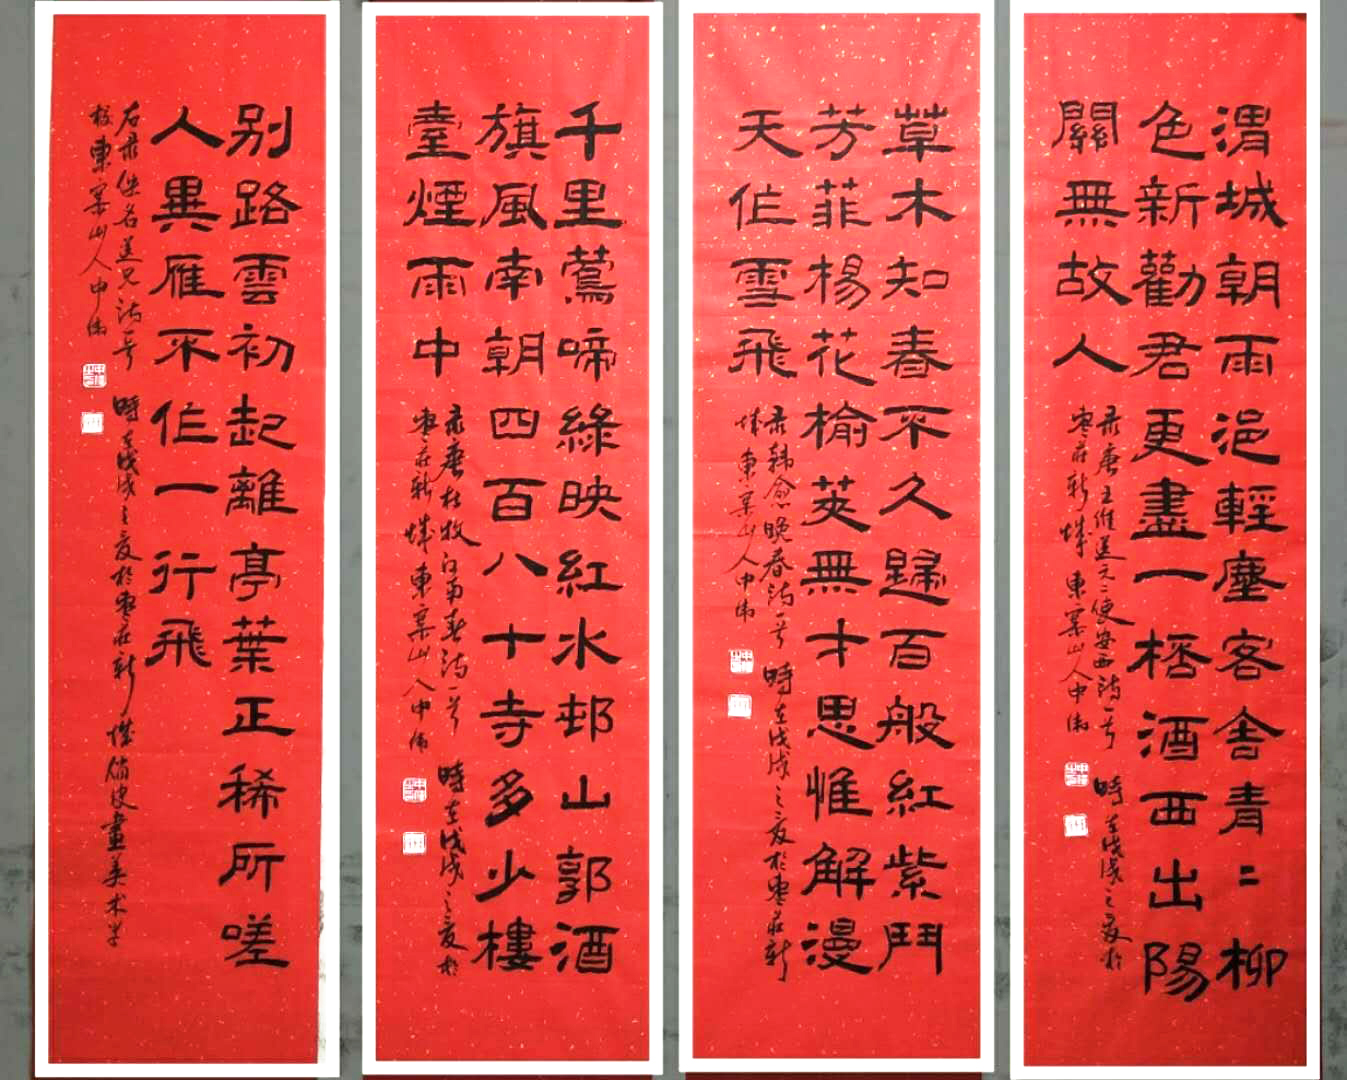 渭城朝雨浥輕塵客舍青〻柳
色新勸君更盡一桮酒西出陽
關無故人
录唐王維送元二使安西詩一首 時在戊戌之夏於
枣莊新城 東寨山人中偉
草木知春不久歸百般紅紫鬥
芳菲楊花榆莢無才思惟解漫
天作雪飛
录韩愈晚春詩一首 時在戊戌之夏於枣莊新
城東寨山人中偉
千里鶯啼綠映紅水邨山郭酒
旗風南朝四百八十寺多少樓
臺煙雨中
录唐杜牧江南春詩一首 時在戊戌之夏於
枣莊新城東寨山人中偉
别路雲初起離亭葉正稀所嗟
人異雁不作一行飛
右录佚名送兄詩一首 時在戊戌之夏於枣莊新城畫美术学
校東寨山人中偉